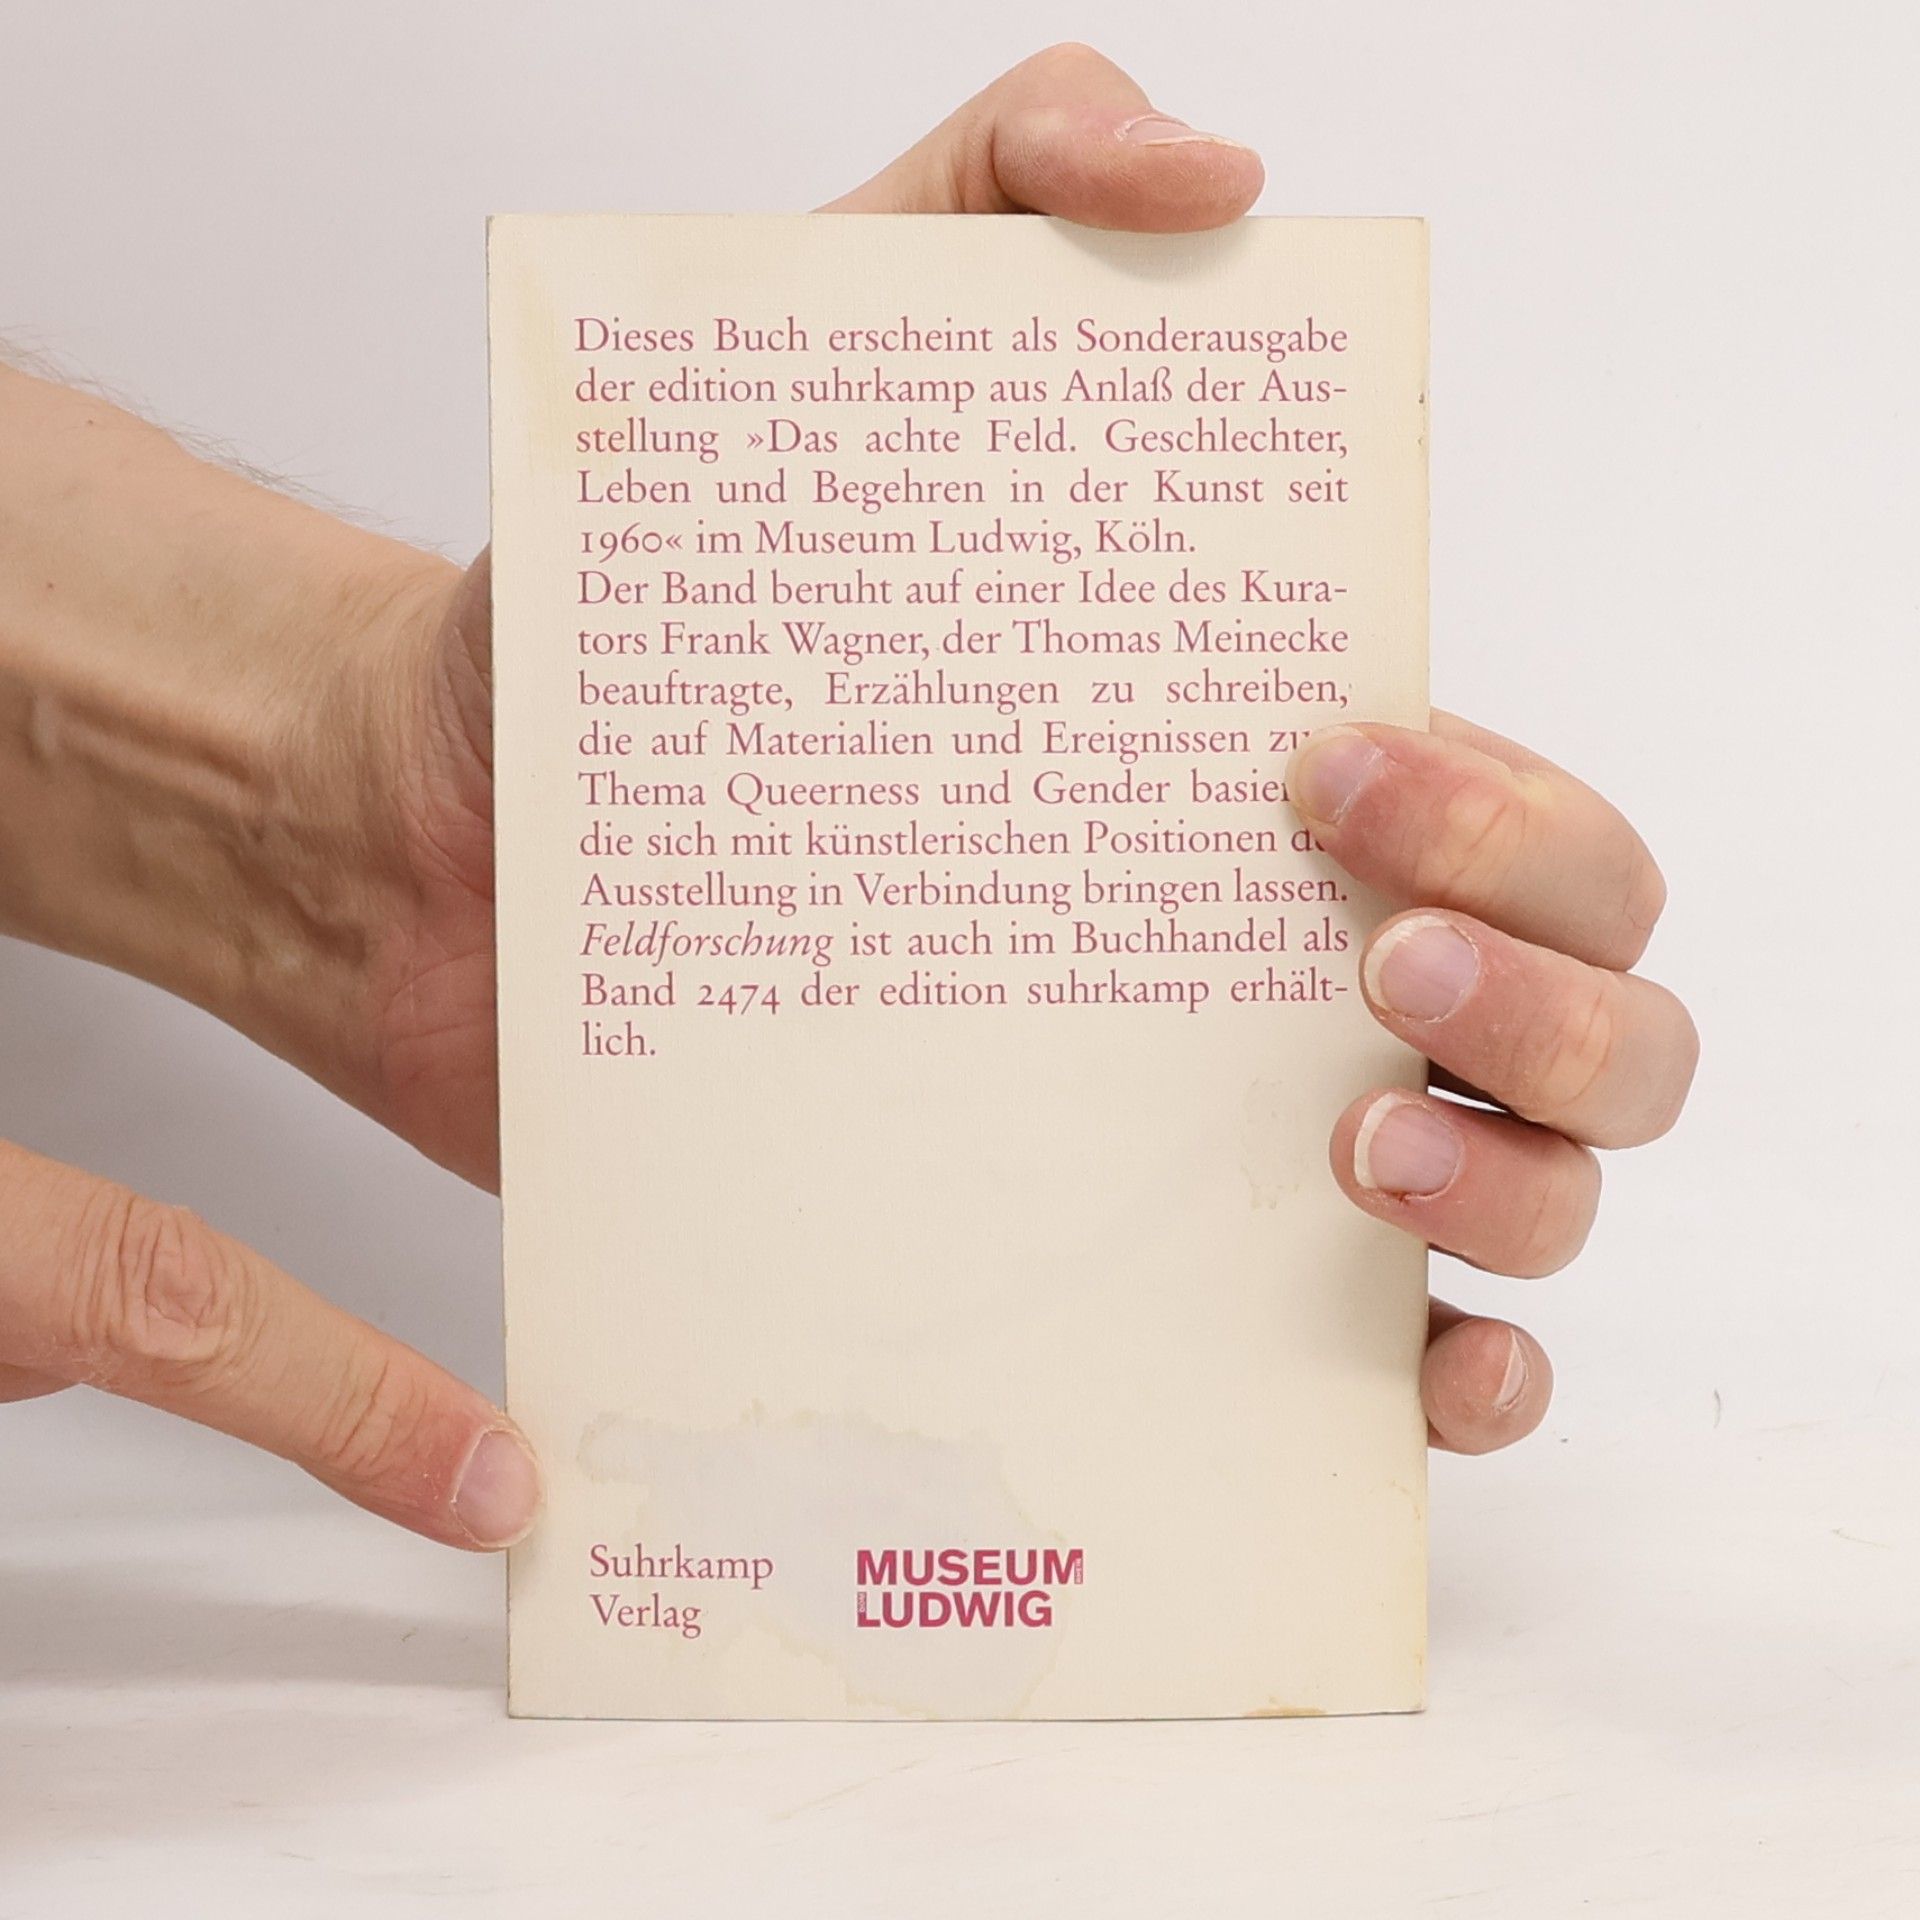 Dieses Buch erscheint als Sonderausgabe
der edition suhrkamp aus Anlaß der Aus-
stellung »Das achte Feld. Geschlechter,
Leben und Begehren in der Kunst seit
1960« im Museum Ludwig, Köln.
Der Band beruht auf einer Idee des Kura-
tors Frank Wagner, der Thomas Meinecke
beauftragte, Erzählungen zu schreiben,
die auf Materialien und Ereignissen
Thema Queerness und Gender
die sich mit künstlerischen Positionen
Ausstellung in Verbindung bringen lassen.
Feldforschung ist auch im Buchhandel als
Band 2474 der edition suhrkamp erhält-
lich.
Suhrkamp
Verlag
MUSEUM
LUDWIG